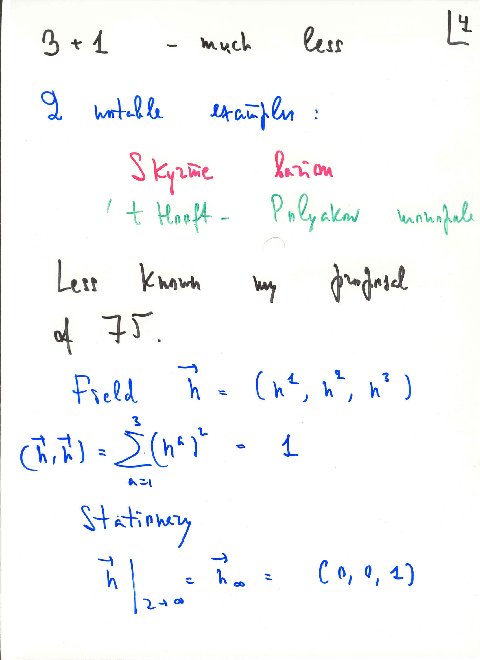 4
3 + 1 - much less
2 notable examples :
Skyrme barion
't Hooft - Polyakov monopole
Less known my proposal
of 75.
Field n⃗ = (n¹, n², n³)
(n⃗, n⃗) = ∑³ₐ₌₁ (nᵃ)² = 1
Stationery
n⃗ |r→∞ = n⃗∞ = (0, 0, 1)